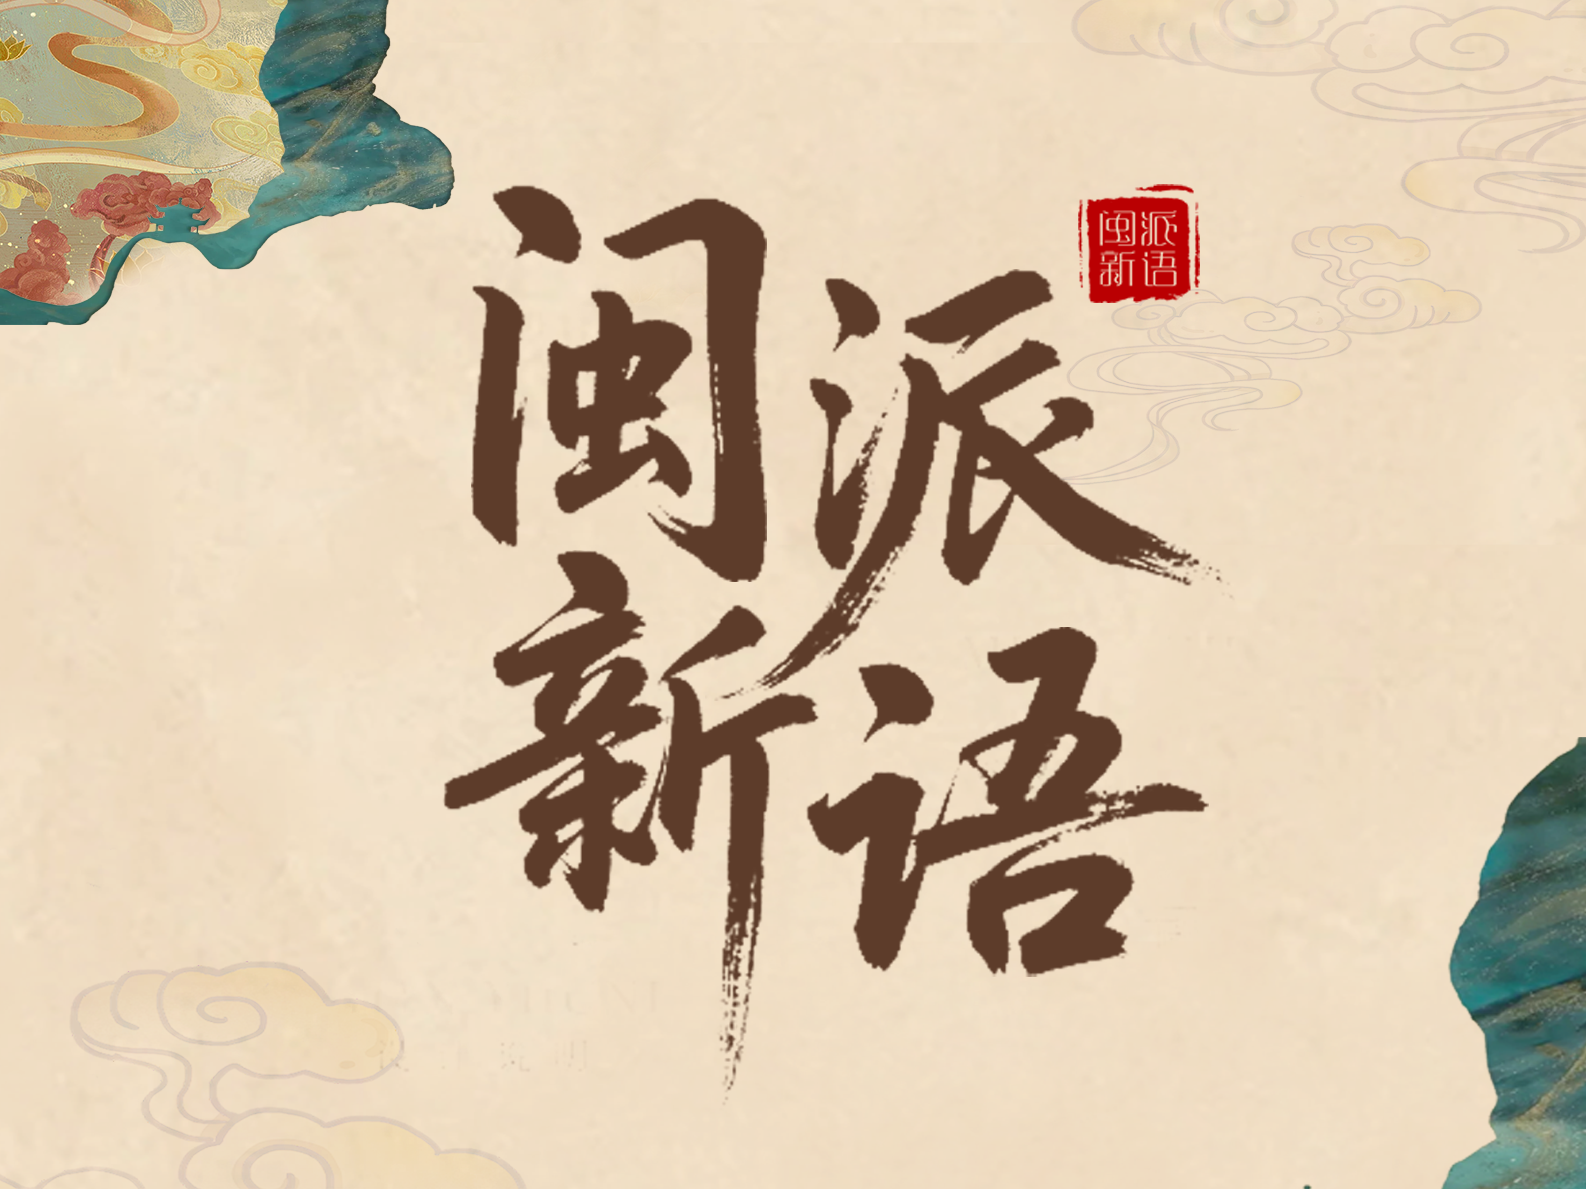 闽派
新语
闽派
新语